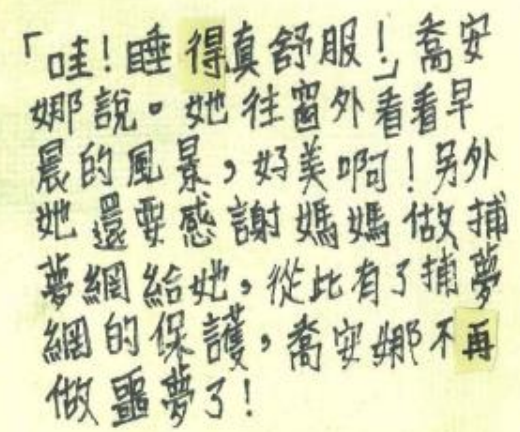 「哇!睡得真舒服!」喬安
娜說。她往窗外看看早
晨的風景,好美啊!另外
她還要感謝媽媽做捕
夢網給她,從此有了捕夢
網的保護,喬安娜不再
做噩夢了!